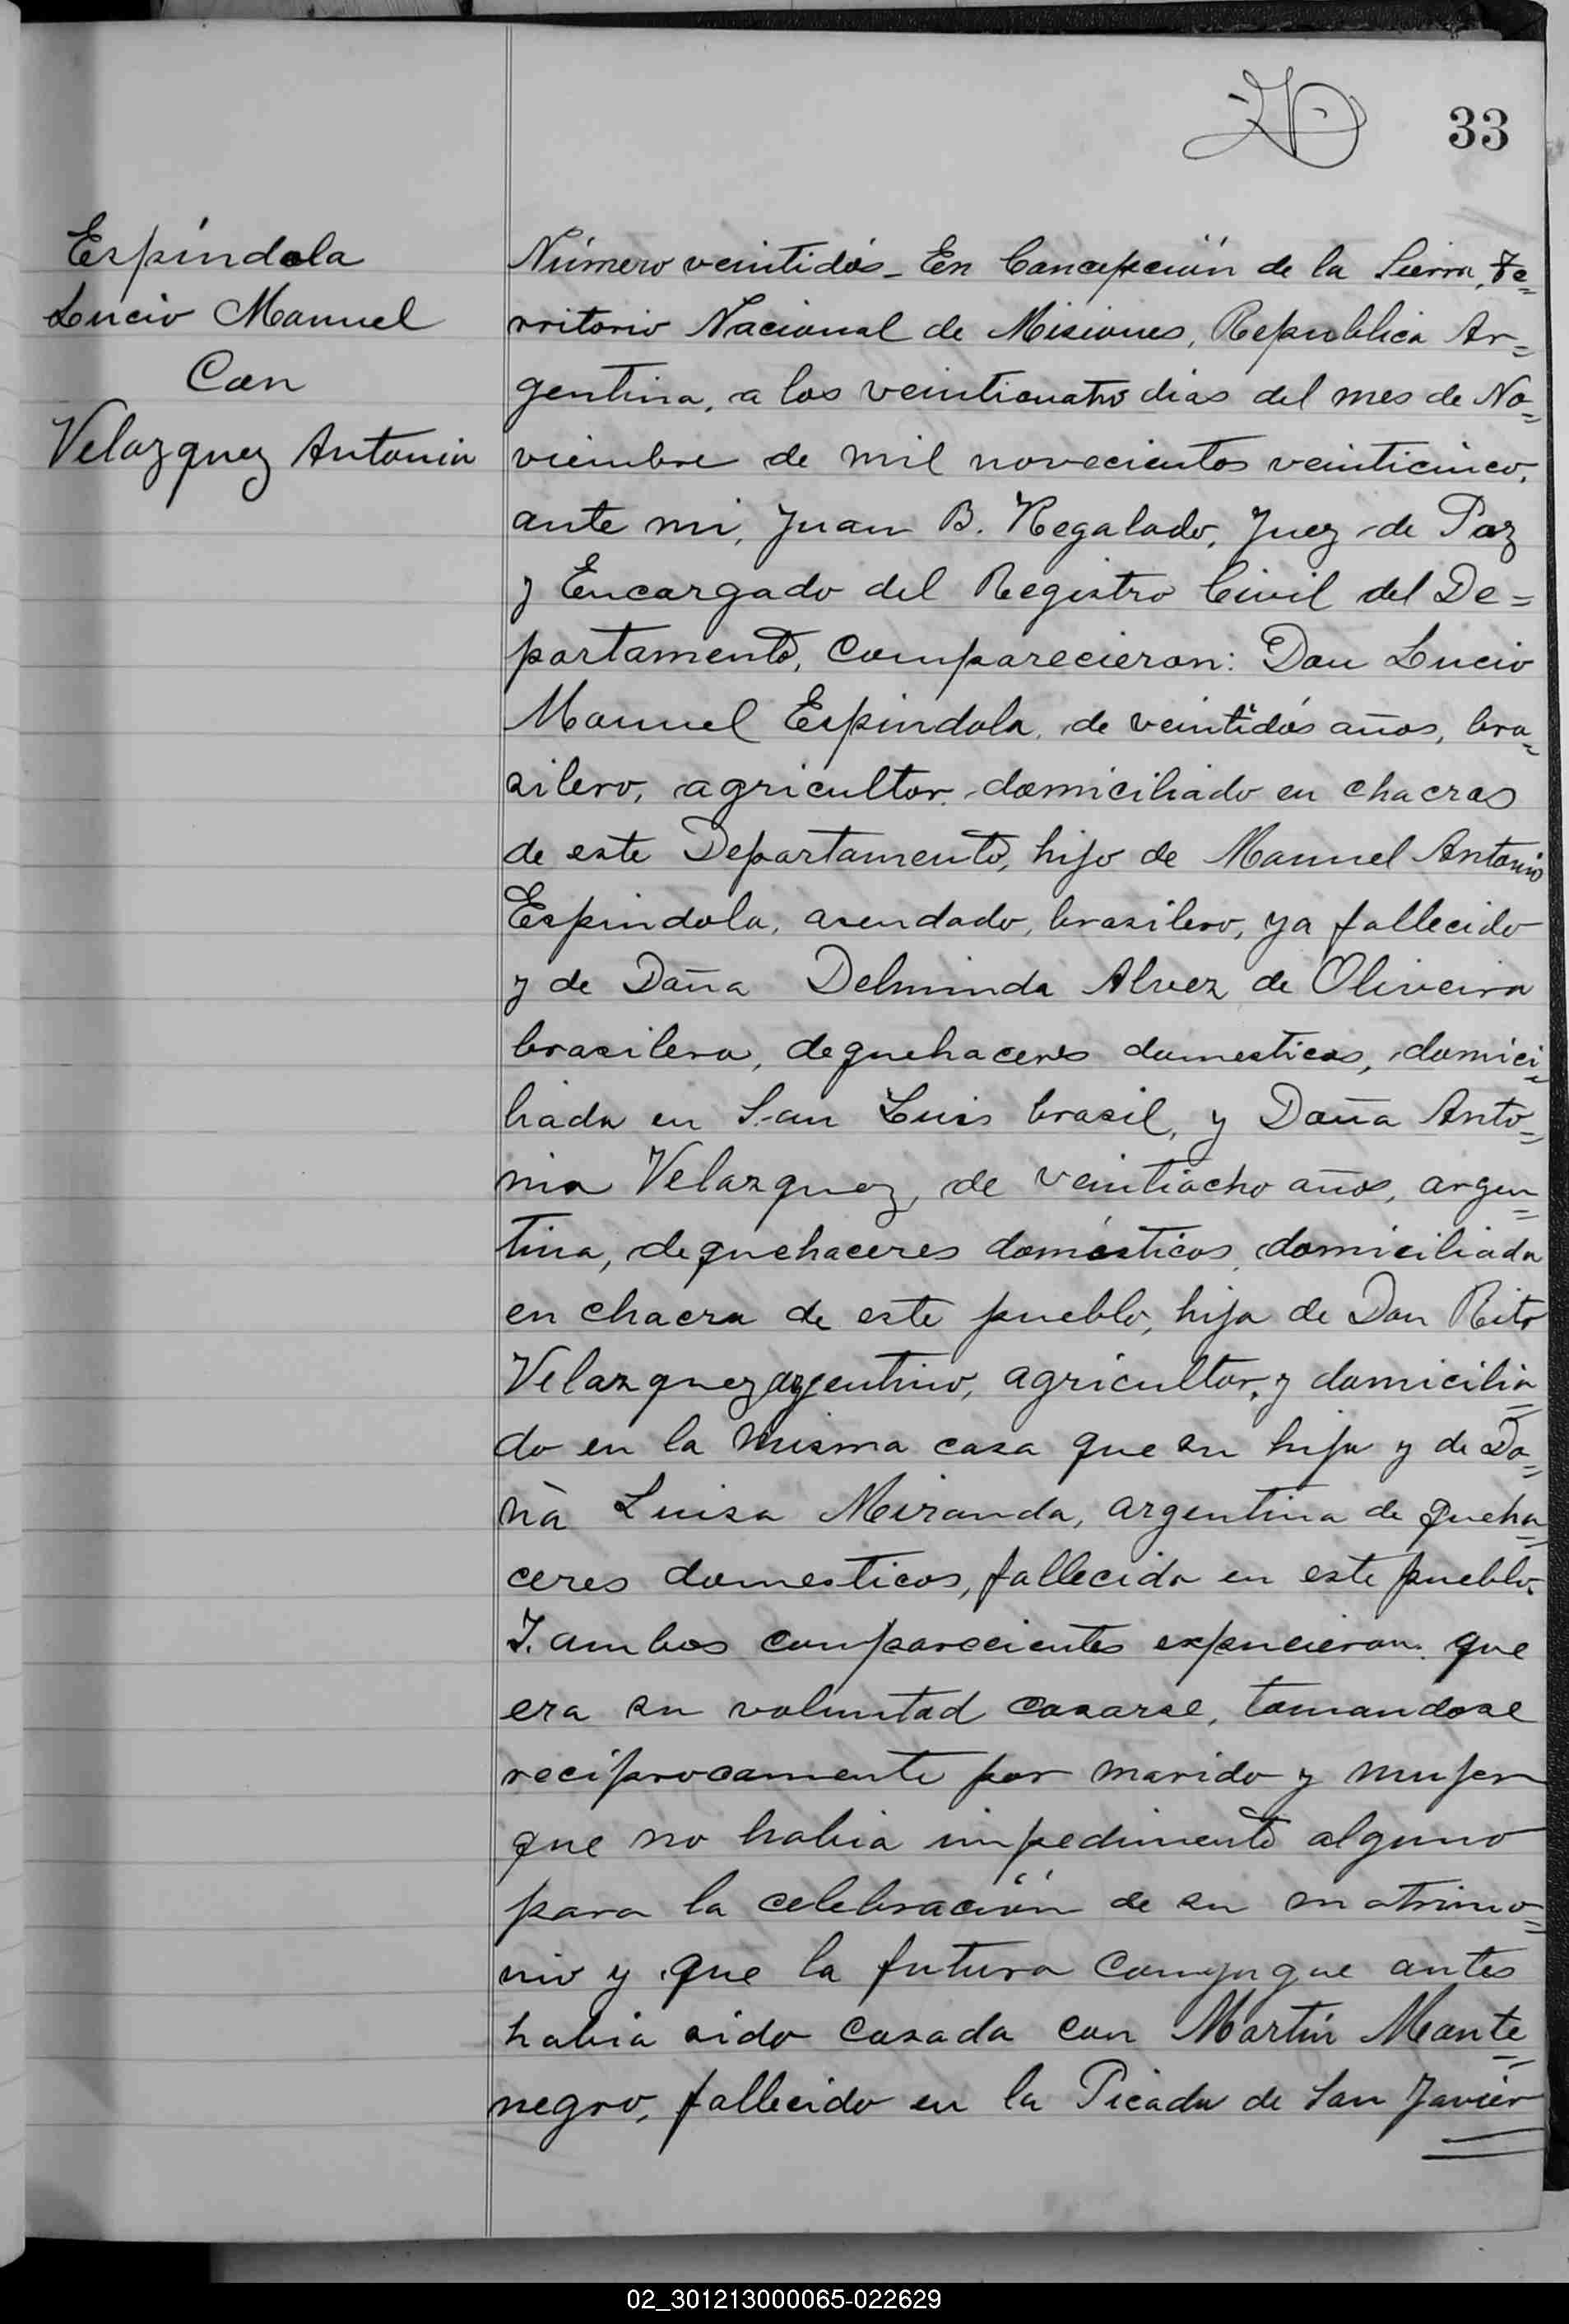 33
Espíndola
Lucio Manuel
Con
Velazquez Antonia
Número veintidós_ En Concepción de la Sierra, Te=
rritorio Nacional de Misiones, Republica Ar=
gentina, a los veinticuatro dias del mes de No=
viembre de mil novecientos veinticinco,
ante mi, Juan B. Regalado, Juez de Paz
y Encargado del Registro Civil del De=
partamento, comparecieron: Don Lucio
Manuel Espindola, de veintidós años, bra=
silero, agricultor, domiciliado en chacras
de este Departamento, hijo de Manuel Antonio
Espindola, asendado, brasilero, ya fallecido
y de Doña Delminda Alvez de Oliveira
brasilera, de quehaceres domesticos, domici=
liada en San Luis brasil, y Doña Anto=
nia Velazquez, de veintiocho años, argen=
tina, de quehaceres domésticos, domiciliada
en chacra de este pueblo, hija de Don Rito
Velazquez argentino, agricultor, y domicilia=
do en la misma casa que su hija y de Do=
ña Luisa Miranda, argentina de queha=
ceres domesticos, fallecida en este pueblo.
Y. ambos comparecientes expucieron: que
era su voluntad casarse, tomandose
reciprocamente por marido y mujer
que no habia impedimento alguno
para la celebración de su matrimo=
nio y que la futura conyugue antes
habia sido casada con Martín Monte=
negro, fallecido en la Picada de San Javier
02_301213000065-022629